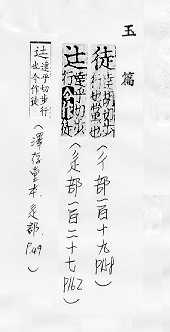 玉篇
徒 達乎切步行也又眾也
（彳部一百十九 P158）
辻 達乎切步行也今作徒
（辵部一百二十七 P162）
辻 達乎切步行也今作徒
（澤存堂本，辵部，P.49）